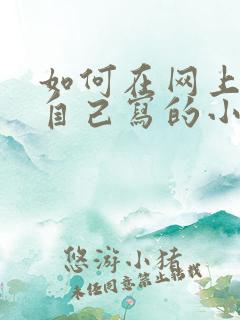 如何在网上
自己寫的小
悠游小猪
未经同意禁止转载